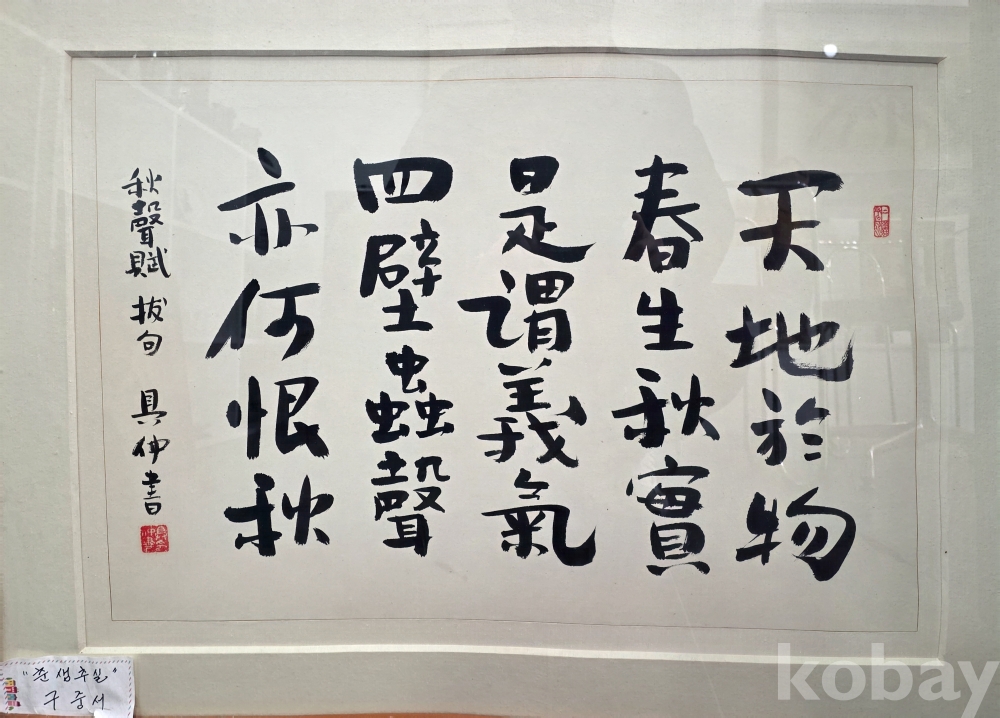 天地於物
春生秋實
是谓義氣
四壁蟲聲
亦何恨秋
秋聲賦 拔句 具仲書
"춘생추실"
구중서
kobay